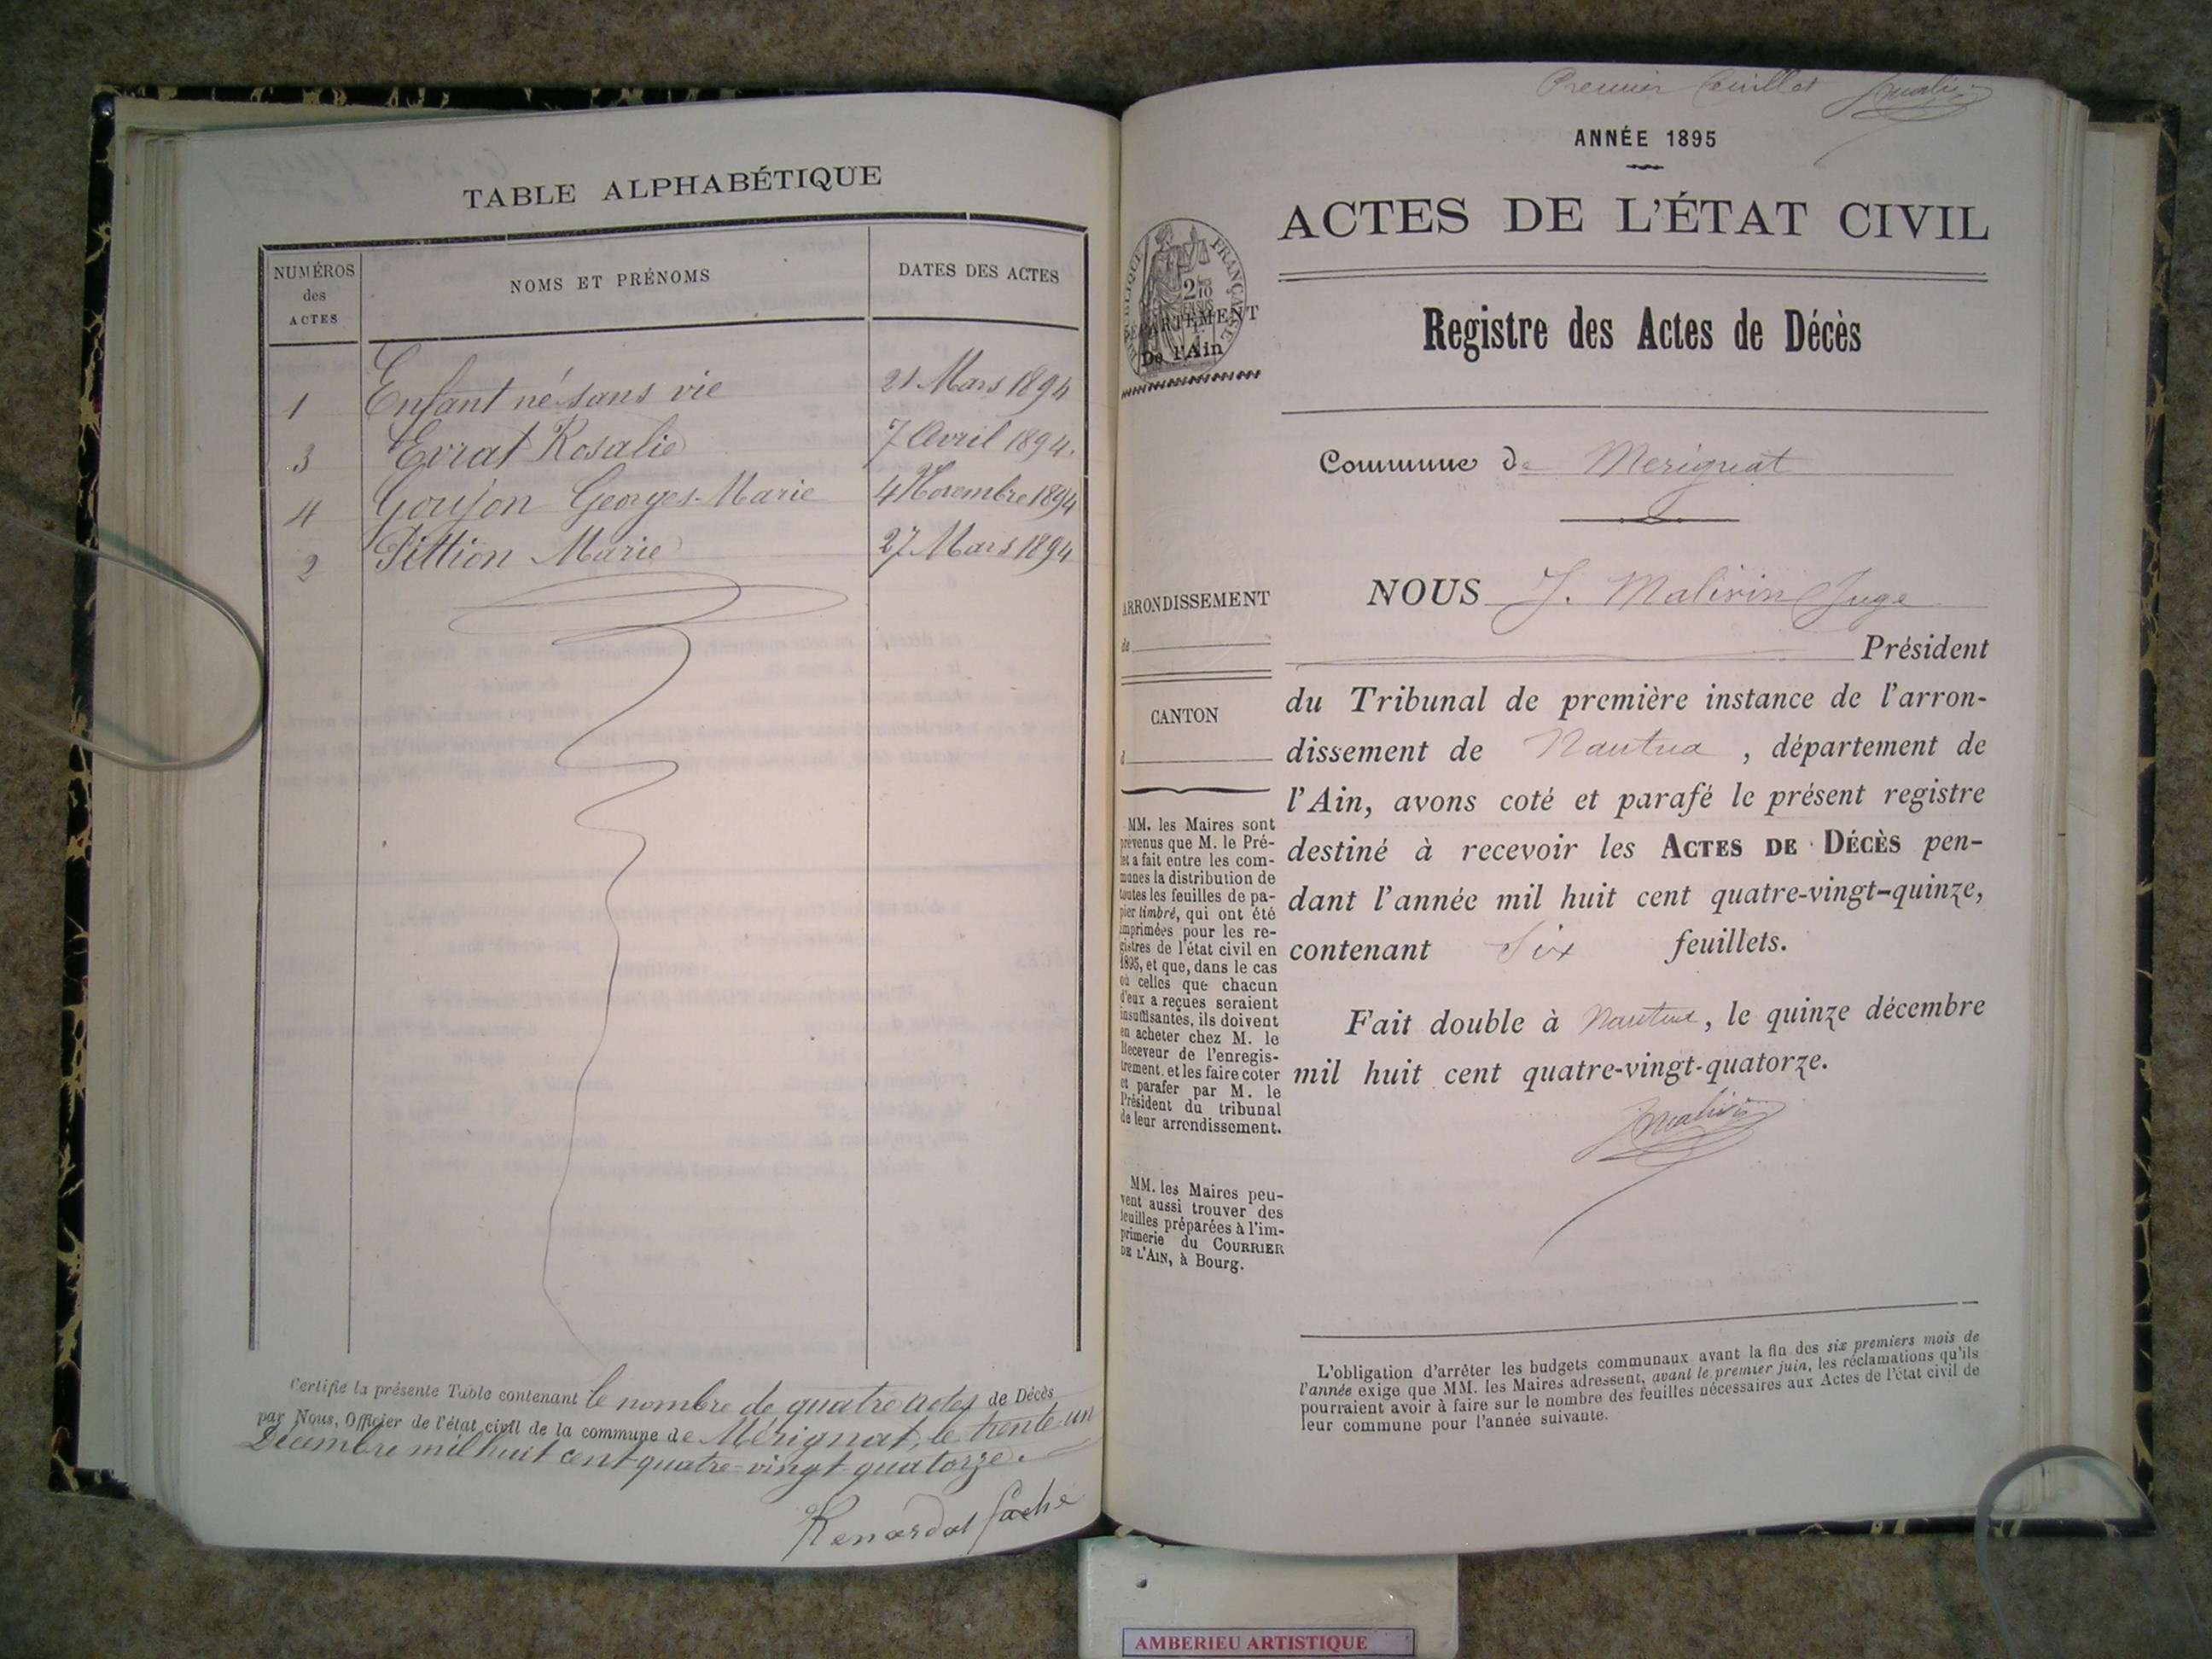 TABLE ALPHABÉTIQUE
NUMÉROS
des
ACTES
NOMS ET PRÉNOMS
DATES DES ACTES
1 Enfant né sans vie 21 Mars 1894
3 Evrat Rosalie 7 Avril 1894.
4 Goujon Georges-Marie 4 Novembre 1894
2 Pittion Marie 27 Mars 1894
Certifié la présente Table contenant le nombre de quatre actes de Décès
par Nous, Officier de l'état civil de la commune de Mérignat, le trente un
Décembre mil huit cent quatre-vingt-quatorze.
Renardat Fache
Premier feuillet
ANNÉE 1895
ACTES DE L'ÉTAT CIVIL
RÉPUBLIQUE FRANÇAISE
2/10
EN SUS
DÉPARTEMENT
De l'Ain
Registre des Actes de Décès
Commune de Merignat
ARRONDISSEMENT
de
CANTON
d
MM. les Maires sont
prévenus que M. le Pré-
fet a fait entre les com-
munes la distribution de
toutes les feuilles de pa-
pier timbré, qui ont été
imprimées pour les re-
gistres de l'état civil en
1895, et que, dans le cas
où celles que chacun
d'eux a reçues seraient
insuffisantes, ils doivent
en acheter chez M. le
Receveur de l'enregis-
trement, et les faire coter
et parafer par M. le
Président du tribunal
de leur arrondissement.
MM. les Maires peu-
vent aussi trouver des
feuilles préparées à l'im-
primerie du COURRIER
DE L'AIN, à Bourg.
NOUS J. Malivin Juge
Président
du Tribunal de première instance de l'arron-
dissement de Nantua, département de
l'Ain, avons coté et parafé le présent registre
destiné à recevoir les ACTES DE DÉCÈS pen-
dant l'année mil huit cent quatre-vingt-quinze,
contenant Six feuillets.
Fait double à Nantua, le quinze décembre
mil huit cent quatre-vingt-quatorze.
L'obligation d'arrêter les budgets communaux avant la fin des six premiers mois de
l'année exige que MM. les Maires adressent, avant le premier juin, les réclamations qu'ils
pourraient avoir à faire sur le nombre des feuilles nécessaires aux Actes de l'état civil de
leur commune pour l'année suivante.
AMBERIEU ARTISTIQUE